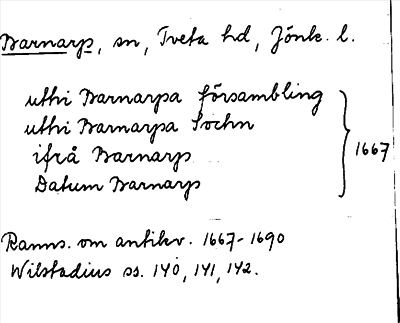 Barnarp, sn, Tveta hd, Jönk. l.
uthi Barnarpa försambling
uthi Barnarpa Sochn
ifrå Barnarp
Datum Barnarp
1667
Ranns. om antikv. 1667-1690
Wilstadius ss. 140, 141, 142.